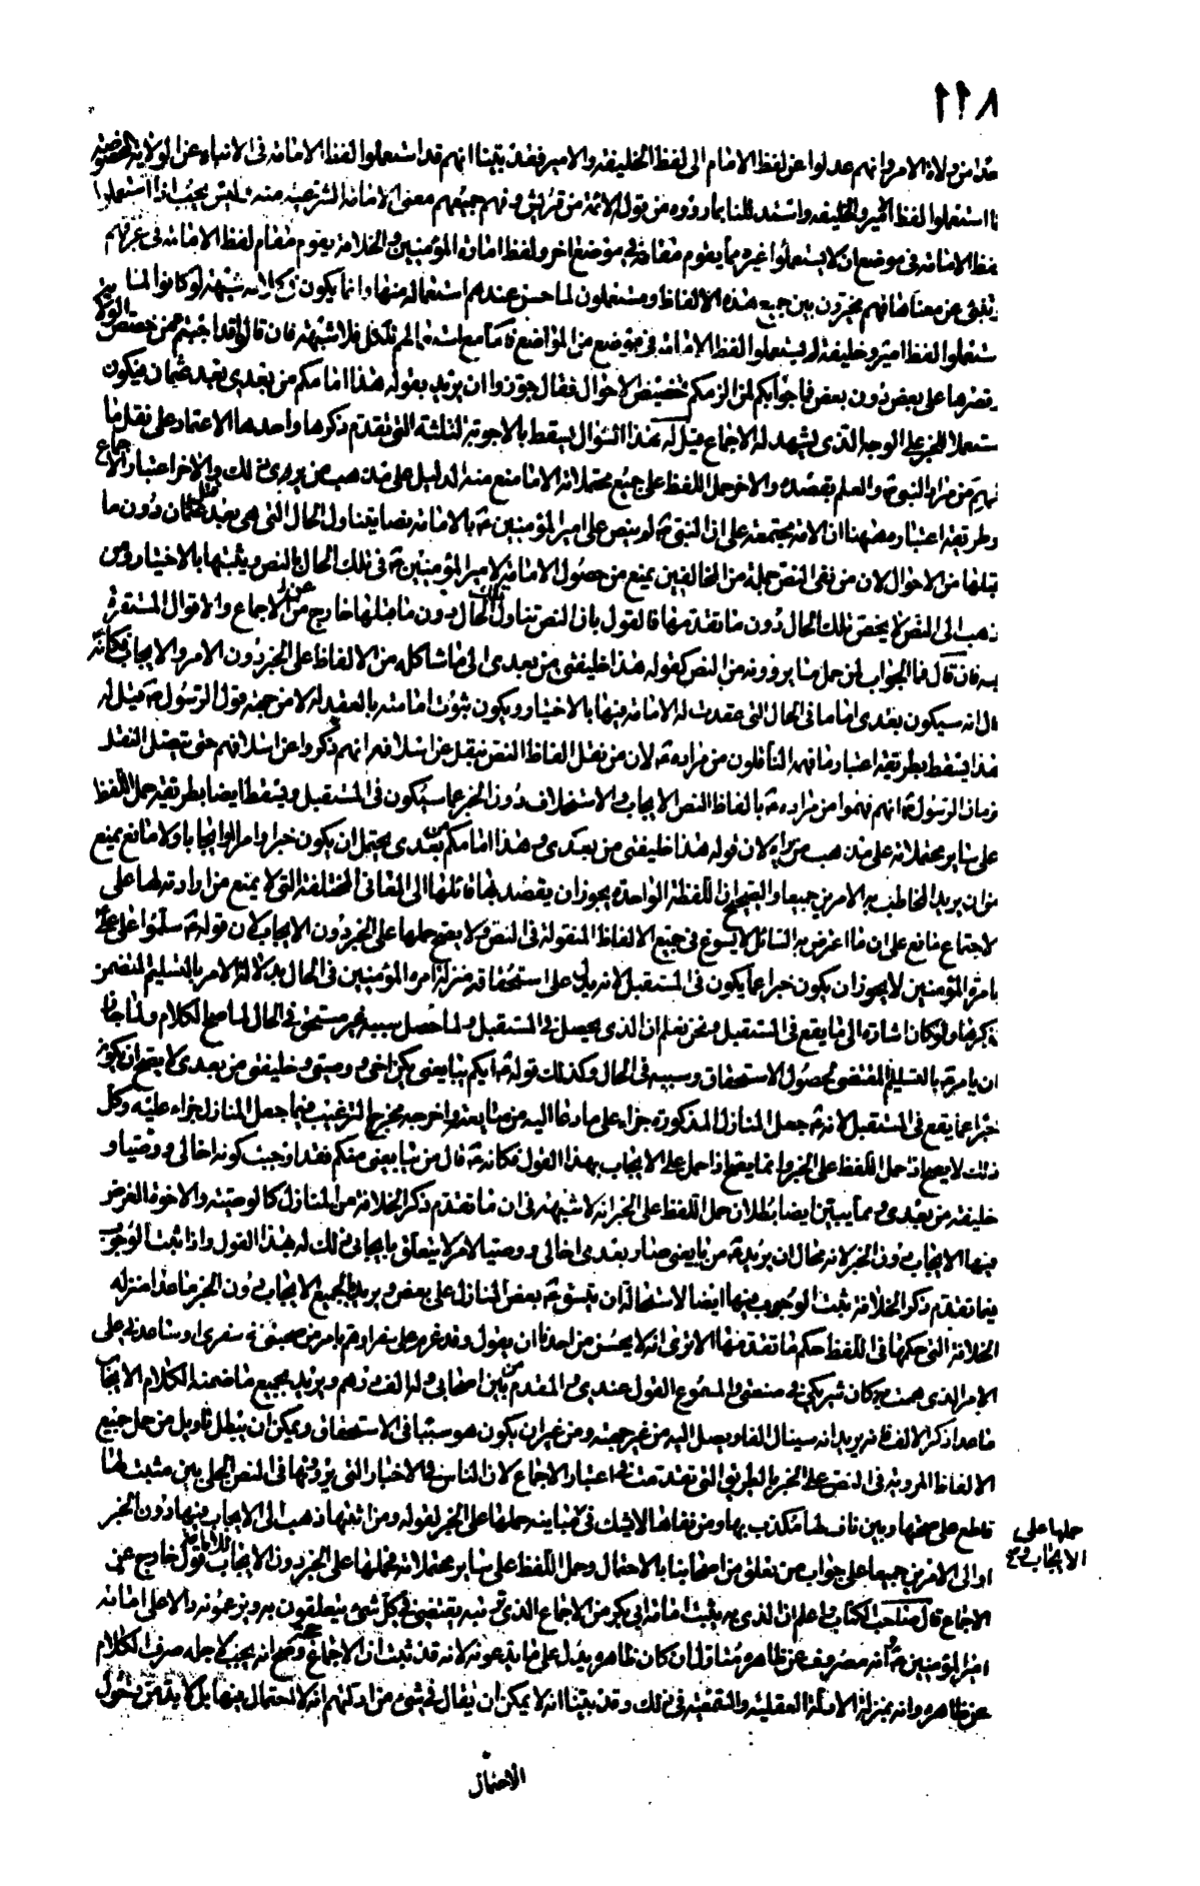 ١١٨
هذا من ولاة الامر وانهم عدلوا عن لفظ الامام الى لفظ الخليفة والامير فقد بيّنا انهم قد استعملوا لفظ الامامة فى الانباء عن الولاية المخصوصة
استعملوا لفظ الخليفة واستدللنا بما رووه من قوله الائمة من قريش وفهم جميعهم معنى الامامة الشرعية منه وليس يجب اذا استعملوا
لفظ الامامة فى موضع ان لا يستعملوا غيره مما يقوم مقامه فى موضع اخر ولفظ امارة المؤمنين والخلافة يقوم مقام لفظ الامامة فى عرفهم
وينبئ عن معناها فهم مخيرون بين جميع هذه الالفاظ ومستعملون لما حسن عندهم استعماله منها وانما يكون فى كلامه شبهة لو كانوا لما
استعملوا لفظ امير وخليفة لم يستعملوا لفظ الامامة فى موضع من المواضع فاما مع استعمالهم للكل فلا شبهة فان قال
يقصرها على بعض دون بعض فما جوابكم لمن الزمكم تخصيص الاحوال فقال جوزوا ان يريد بقوله هذا امامكم من بعدى بعد عثمان فيكون
مستعملا للخبر على الوجه الذى يشهد له الاجماع قيل له هذا السؤال يسقط بالاجوبة الثلثة التى تقدم ذكرها واحدها الاعتماد على نقل ما
فهم من مراد النبى والعلم بقصده والاخر حمل اللفظ على جميع محتملاته الا ما منع منه الدليل على مذهب من يرى ذلك والاخر اعتبار الاجماع
وطريقة اعتباره ههنا ان الامة مجتمعة على ان النبى لم ينص على امير المؤمنين بالامامة نصا يتناول الحال التى هى بعد عثمان دون ما
قبلها من الاحوال لان من نفى النص جملة من المخالفين يمنع من حصول الامامة لامير المؤمنين فى تلك الحال بالنص ويثبتها بالاختيار ومن
ذهب الى النص لا يخص تلك الحال دون ما تقدم منها فالقول بان النص تناول تلك الحال دون ما قبلها خارج عن الاجماع والاقوال المستقرة
فيه فان قال فما الجواب لمن حمل ساير ما يروونه من النص كقوله هذا خليفتى من بعدى الى ما شاكله من الالفاظ على الخبر دون الامر والايجاب فكانه
قال انه سيكون بعدى اماما فى الحال التى عقدت له الامامة فيها بالاختيار ويكون ثبوت امامته بالعقد له لا من جهة قول الرسول قيل له
هذا يسقط بطريقة اعتبار ما فهمه الناقلون من مراده لان من نقل الفاظ النص ينقل عن اسلافه انهم ذكروا عن اسلافهم حتى يتصل النقل
بزمان الرسول انهم فهموا من مراده بالفاظ النص الايجاب والاستخلاف دون الخبر عما سيكون فى المستقبل ويسقط ايضا بطريقة حمل اللفظ
على ساير محتملاته على مذهب من يراه لان قوله هذا خليفتى من بعدى وهذا امامكم من بعدى يحتمل ان يكون خبرا وامرا وايجابا ولا مانع يمنع
من ان يريد المخاطب به الامرين جميعا والصحيح ان اللفظة الواحدة يجوز ان يقصد بها قائلها الى المعانى المختلفة التى لا يمنع من ارادته لها على
الاجتماع مانع على ان ما اعترض به السائل لا يسوغ فى جميع الالفاظ المنقولة فى النص ولا يصح حملها على الخبر دون الايجاب لان قوله سلموا على على
بامرة المؤمنين لا يجوز ان يكون خبرا عما يكون فى المستقبل لانه يدل على استحقاقه منزلة امرة المؤمنين فى الحال بدلالة الامر بالتسليم المتضمن
لذكرها ولو كان اشارة الى ما يقع فى المستقبل ونحن نعلم ان الذى يحصل فى المستقبل ولما حصل سببه غير مستحق فى الحال لما صح الكلام ولما جاز
ان يامر بالتسليم المقتضى لحصول الاستحقاق وسببه فى الحال وكذلك قوله ايكم يبايعنى يكن اخى ووصيى وخليفتى من بعدى لا يصح ان يكون
خبرا عما يقع فى المستقبل لانه جعل المنازل المذكورة جزاء على ما دعا اليه من متابعته واخرجه مخرج الترغيب فيما جعل المنازل جزاء عليه وكل
ذلك لا يصح اذا حمل اللفظ على الخبر وانما يصح اذا حمل على الايجاب بهذا القول فكانه قال من بايعنى منكم فقد اوجبت كونه اخا لى ووصيا و
خليفة من بعدى ومما يبين ايضا بطلان حمل اللفظ على الخبر انه لا شبهة فى ان ما تقدم ذكر الخلافة من المنازل كالوصية والاخوة الغرض
فيها الايجاب دون الخبر لانه محال ان يريد من بايعنى صار بعدى اخا لى ووصيا لامر لا يتعلق بايجابى ذلك له هذا القول واذا ثبت الوجوب
فيما تقدم ذكر الخلافة ثبت الوجوب فيها ايضا لاستحالة ان ينسق بعض المنازل على بعض ويريد بالجميع الايجاب دون الخبر ما عدا منزلة
الخلافة التى حكمها فى اللفظ حكم ما تقدمها الا ترى انه لا يحسن من احدنا ان يقول وقد عزم على سفر او هم بامر من صحبنى فى سفرى او ساعدنى على
الامر الذى هممت به كان شريكى فى صنعتى والمسموع القول عندى والمقدم من بين اصحابى وله الف درهم ويريد بجميع ما ضمنه الكلام الايجاب
ما عدا ذكر الالف فانه يريد انه سينال الفا ويصل اليه من غير جهته ومن غير ان يكون هو سببا فى الاستحقاق ويمكن ان يبطل تاويل من حمل جميع
الالفاظ المروية فى النص على الخبر بالطريق التى تقدمت من اعتبار الاجماع لان الناس فى الاخبار التى يروونها فى النص الجلى بين مثبت لها
قاطع على صحتها وبين ناف لها مكذب بها ومن نفاها لا يشك فى مباينته حملها على الخبر لقوله ومن اثبتها ذهب الى الايجاب فيها دون الخبر
او الى الامرين جميعا على جواب من تعلق من اصحابنا بالاحتمال وحمل اللفظ على ساير محتملاته فحملها على الخبر دون الايجاب للامامة قول خارج عن
الاجماع قال صاحب الكتاب واعلم ان الذى به يثبت امامة ابى بكر من الاجماع الذى نبينه يقتضى فى كل شئ يتعلقون به ويزعمونه دالا على امامة
امير المؤمنين انه مصروف عن ظاهره متاول ان كان ظاهره يدل على ما يدعونه لانه قد ثبت ان الاجماع حجة وصح انه يجب لاجله صرف الكلام
عن ظاهره وانه بمنزلة الادلة العقلية والسمعية فى ذلك وقد بينا انه لا يمكن ان يقال فى شئ من ادلتهم انه لا احتمال فيها بل لا بد من دخول
حملها على
الايجاب
الاحتمال